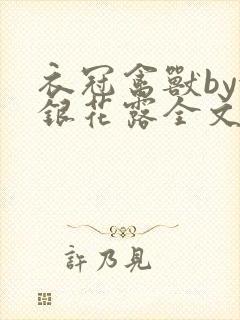 衣冠禽獸by
銀花露全文
許乃見